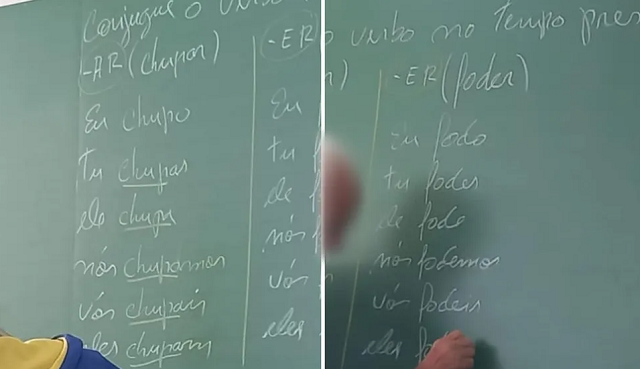 Conjugue o verbo
-AR (chupar)
Eu chupo
tu chupas
ele chupa
nós chupamos
vós chupais
eles chupam
-ER
Eu
tu
ele
nós
vós
eles
o verbo no tempo pres
-ER (foder)
Eu fodo
tu fodes
ele fode
nós fodemos
vós fodeis
eles fo